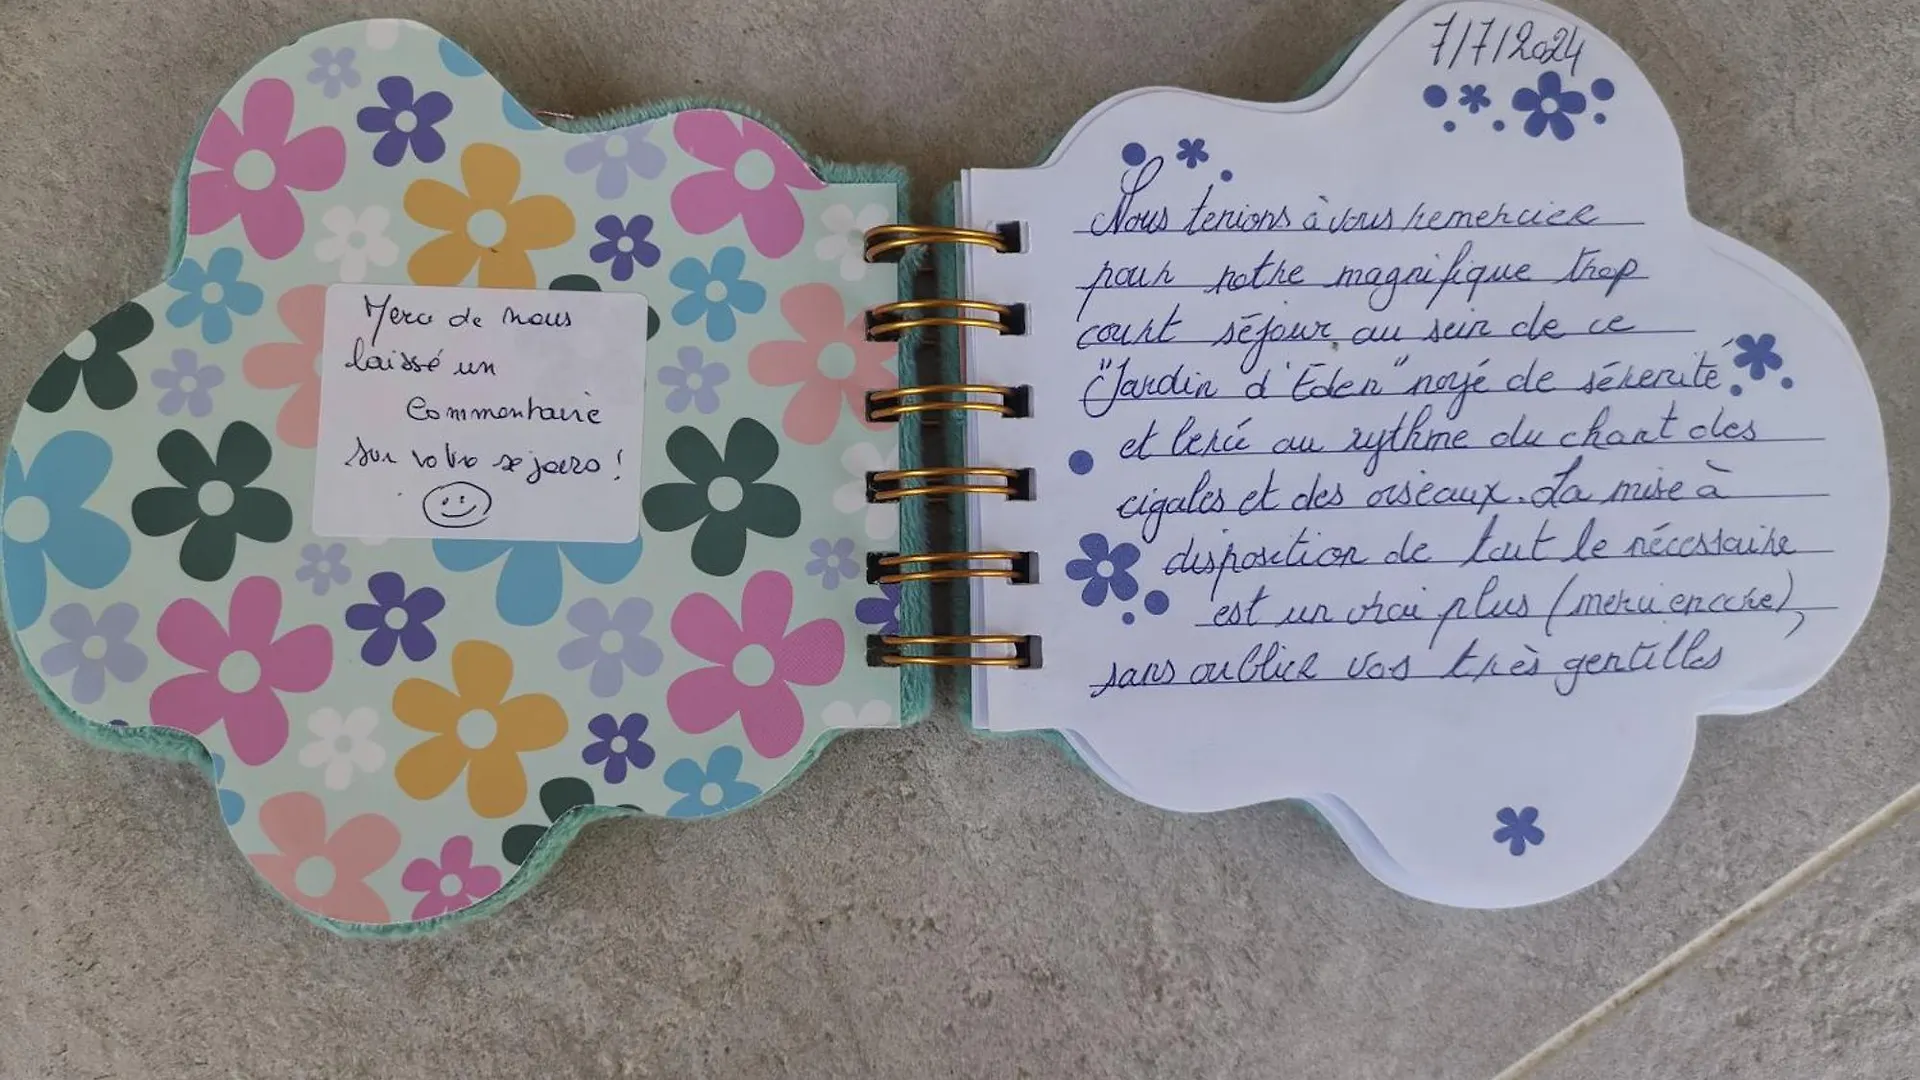 Merci de nous
laissé un
Commentaire
sur votre séjours !
7/7/2024
Nous tenions à vous remercier
pour notre magnifique trop
court séjour, au sein de ce
"Jardin d'Eden" noyé de sérénité
et bercé au rythme du chant des
cigales et des oiseaux. La mise à
disposition de tout le nécessaire
est un vrai plus (merci encore),
sans oublier vos très gentilles